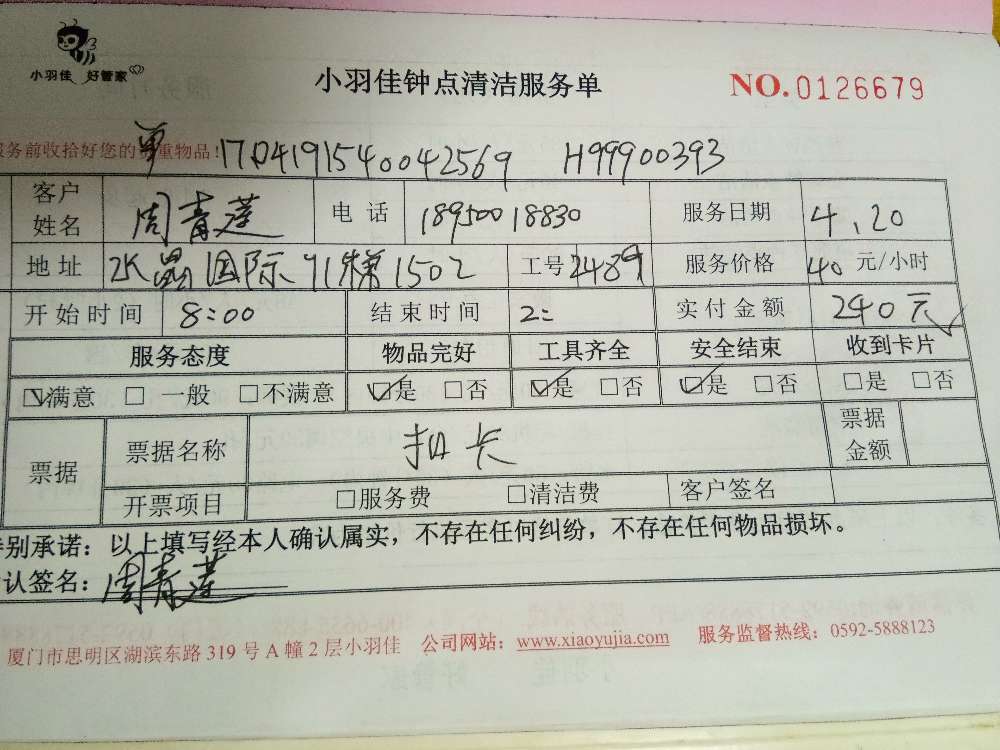 小羽佳 好管家
小羽佳钟点清洁服务单
NO.0126679
服务前收拾好您的贵重物品! 单 1704191540042569 H99900393
客户姓名 周青莲 电话 18950018830 服务日期 4.20
地址 水晶国际71梯1502 工号 2489 服务价格 40 元/小时
开始时间 8:00 结束时间 2: 实付金额 240元
服务态度 物品完好 工具齐全 安全结束 收到卡片
☑满意 □ 一般 □不满意 ☑是 □否 ☑是 □否 ☑是 □否 □是 □否
票据 票据名称 扣卡 票据金额
开票项目 □服务费 □清洁费 客户签名
特别承诺：以上填写经本人确认属实，不存在任何纠纷，不存在任何物品损坏。
认签名：周青莲
厦门市思明区湖滨东路 319 号 A 幢 2 层小羽佳 公司网站：www.xiaoyujia.com 服务监督热线：0592-5888123